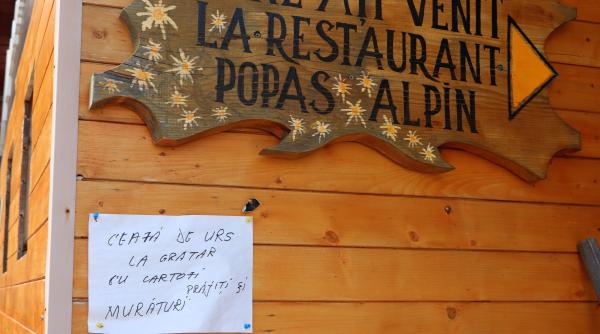 NE AȚI VENIT
LA RESTAURANT
POPAS ALPIN
CEAFĂ DE URS
LA GRATAR
CU CARTOFI
PRĂJIȚI ȘI
MURĂTURI